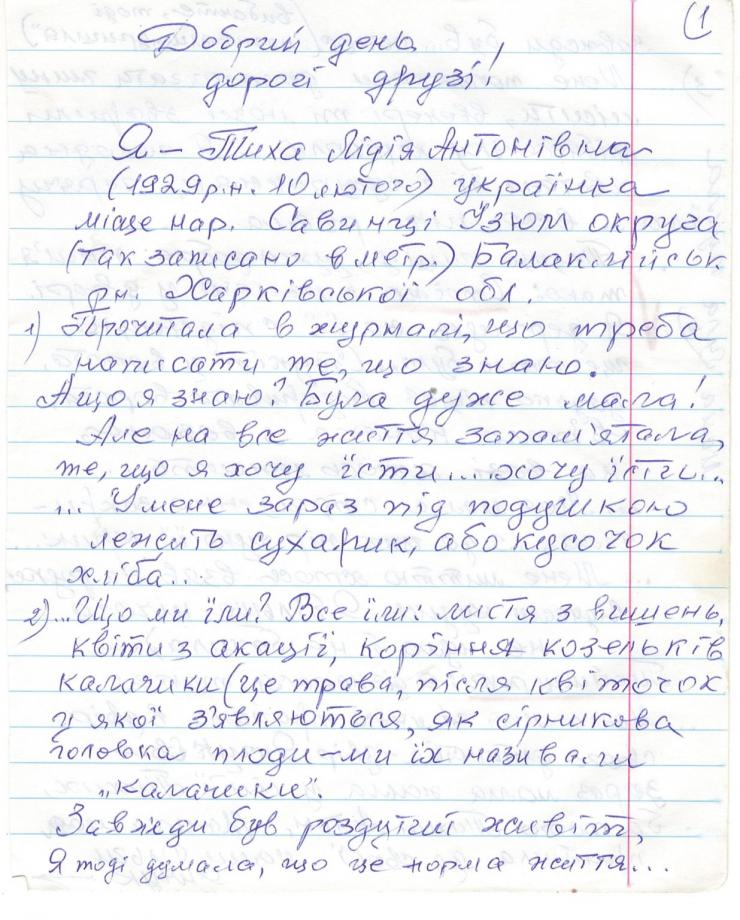 (1
Добрий день,
дорогі друзі!
Я – Тиха Лідія Антонівна
(1929 р.н. 10 лютого) українка
місце нар. Савинці Ізюм округа
(так записано в метр.) Балаклійськ.
рн. Харківської обл.
1) Прочитала в журналі, що треба
написати те, що знаю.
А що я знаю? Була дуже мала!
Але на все життя запам'ятала,
те, що я хочу їсти.... хочу їсти...
... У мене зараз під подушкою
лежить сухарик, або кусочок
хліба...
2) ... Що ми їли? Все їли: листя з вишень,
квіти з акації, коріння козельків
калачики (це трава, після квіточок
у якої з'являються, як сірникова
головка плоди – ми їх називали
„калачики".
Завжди був роздутий живіт,
Я тоді думала, що це норма життя...